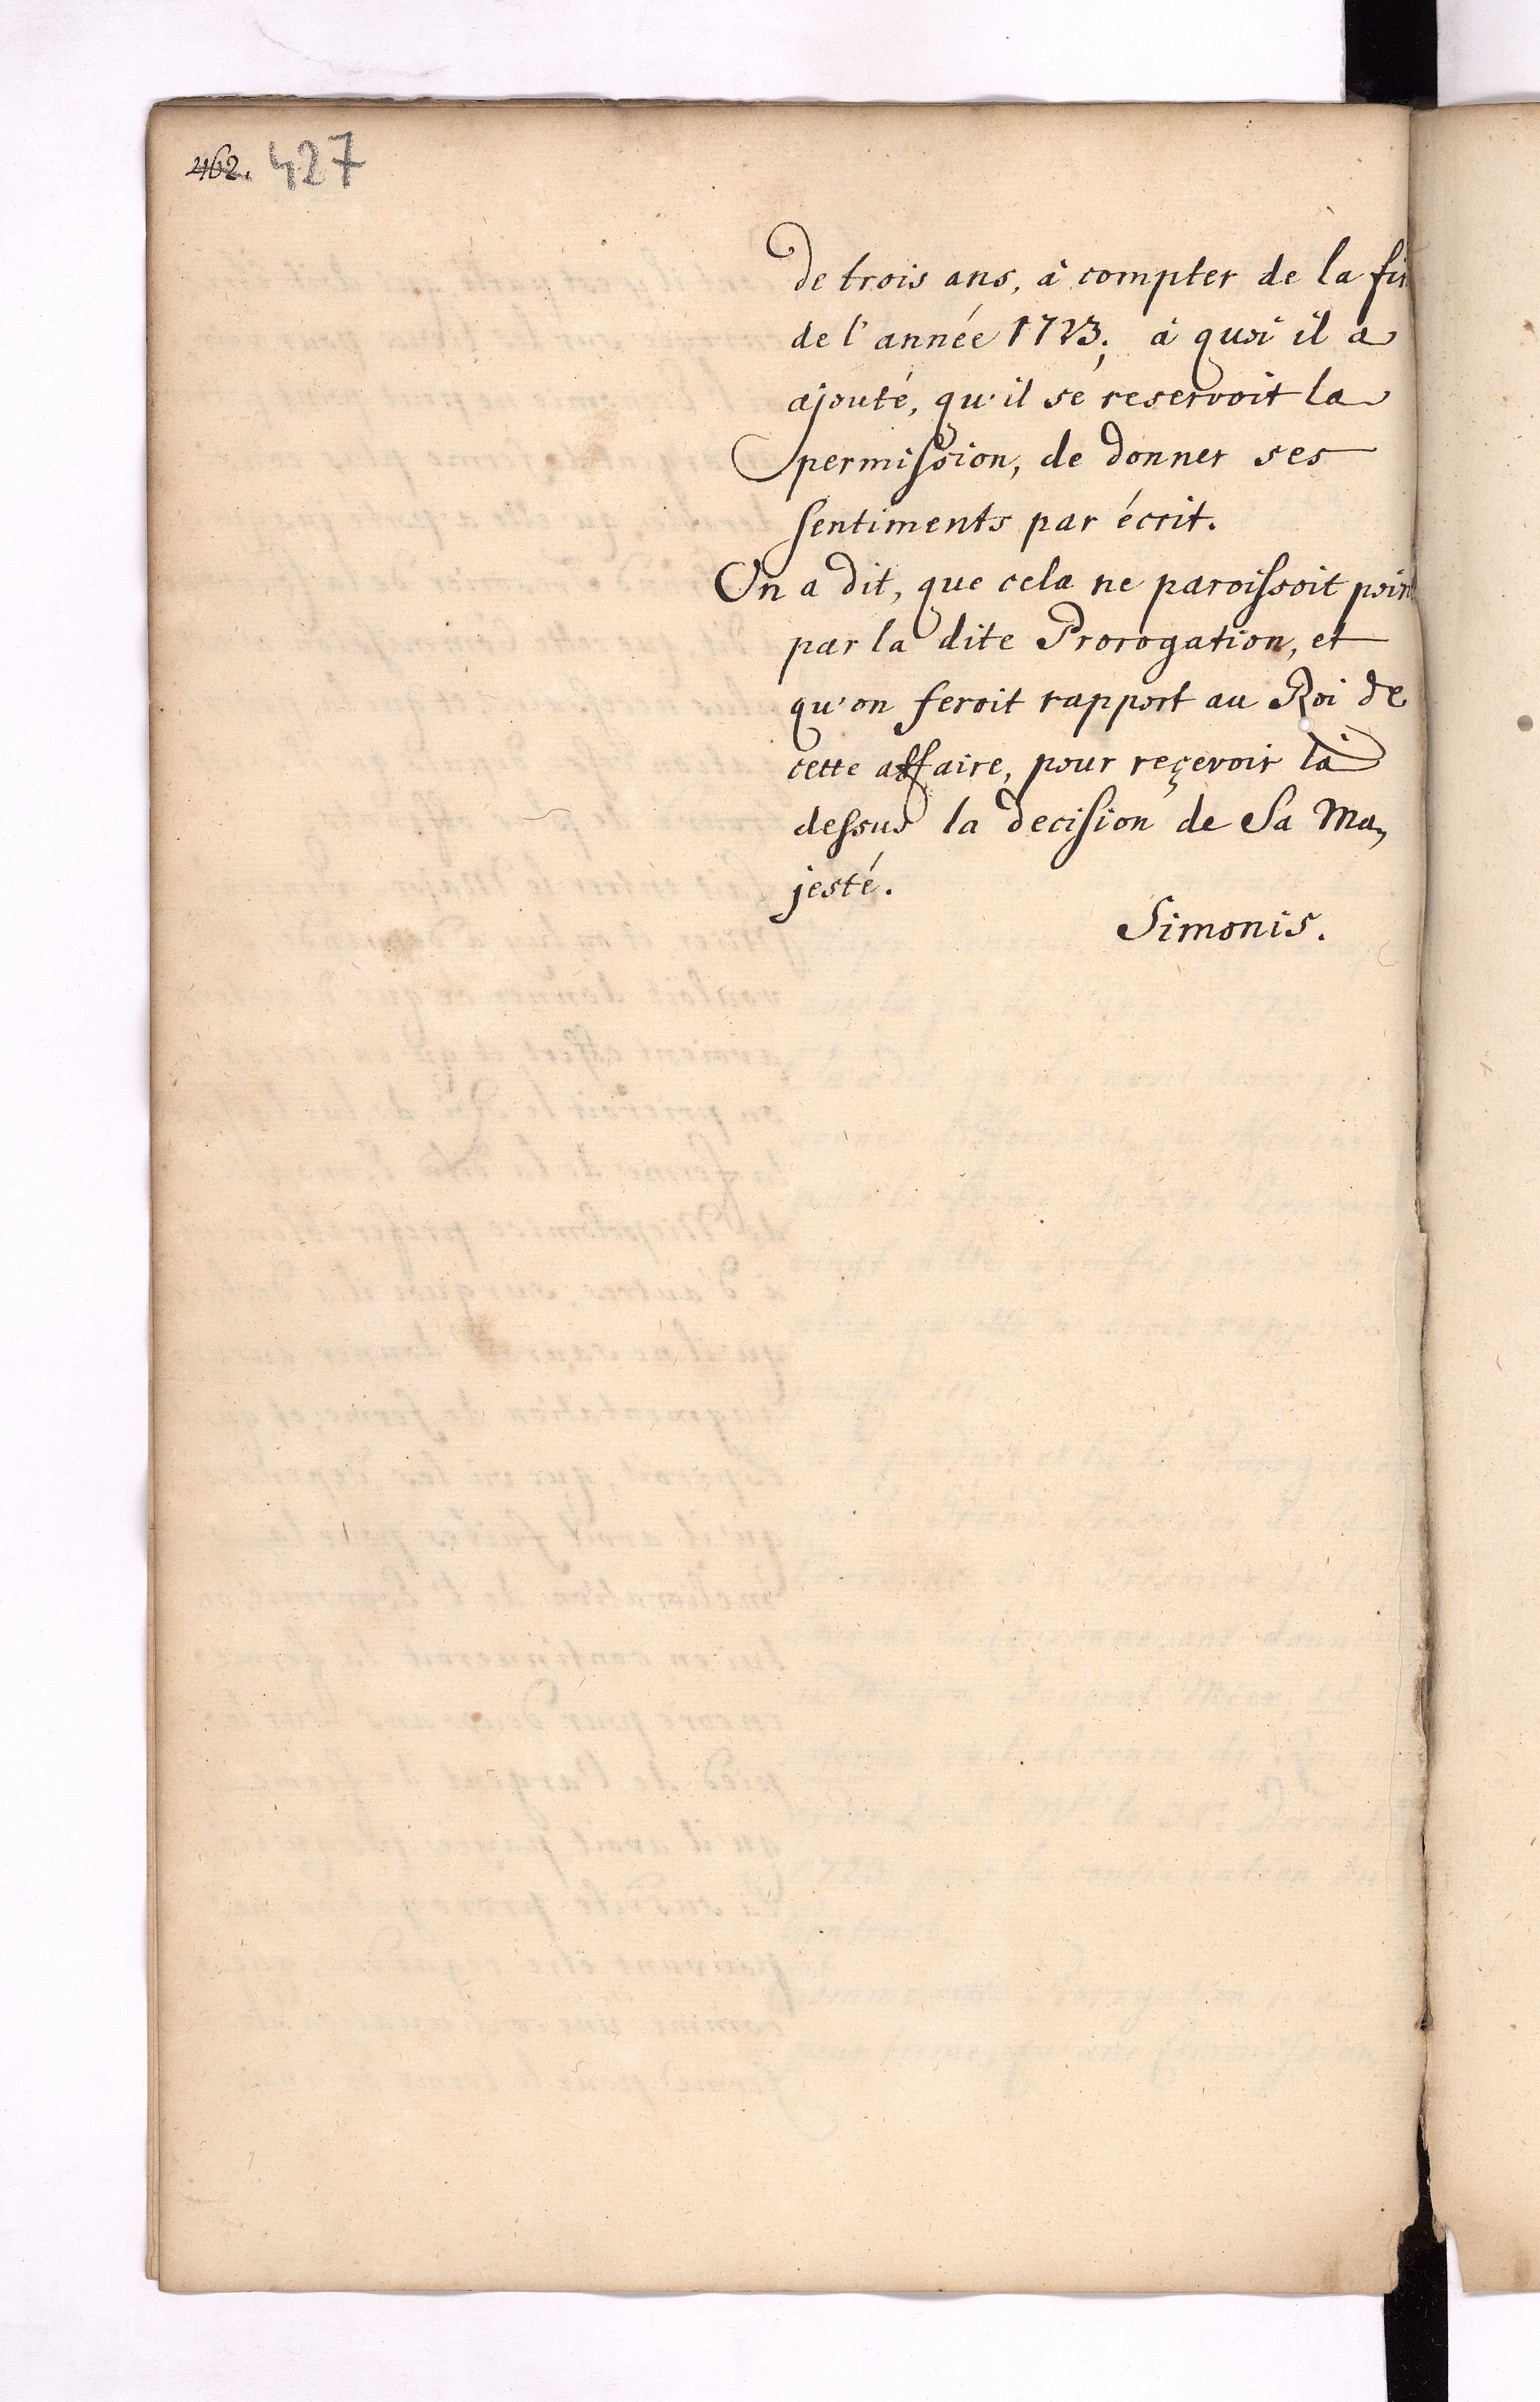 462. 427
de trois ans, à compter de la fin
de l'année 1723; à quoi il a
ajouté, qu'il se reservoit la
permission, de donner ses
sentiments par écrit.
On a dit, que cela ne paroissoit point
par la dite Prorogation, et
qu'on feroit rapport au Roi de
cette affaire, pour reçevoir là
dessus la decision de Sa Ma,
jesté.
Simonis.